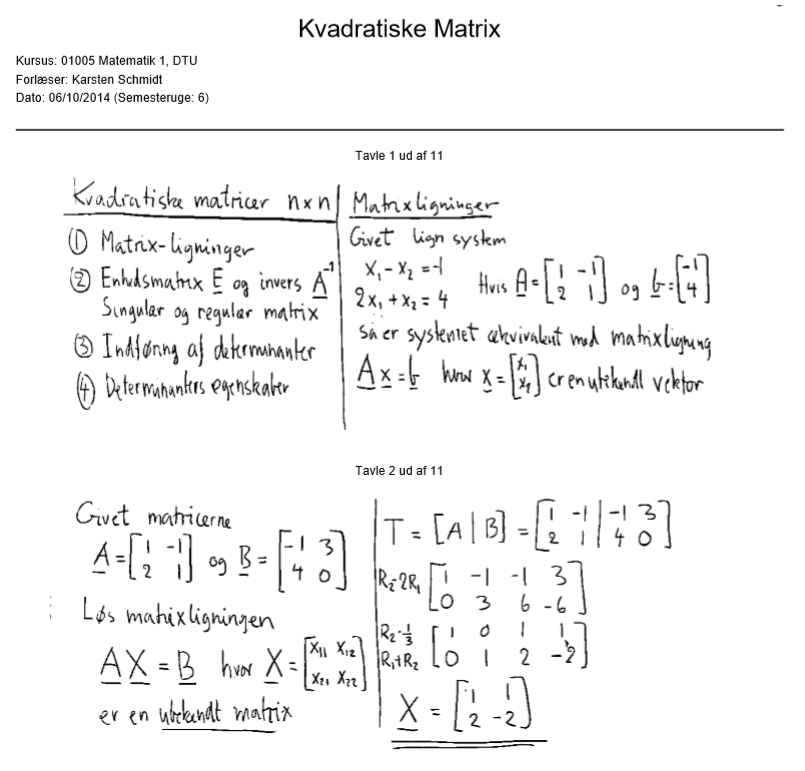 Kvadratiske Matrix
Kursus: 01005 Matematik 1, DTU
Forlæser: Karsten Schmidt
Dato: 06/10/2014 (Semesteruge: 6)
Tavle 1 ud af 11
Kvadratiske matricer n×n
① Matrix-ligninger
② Enhedsmatrix E og invers A⁻¹
Singulær og regulær matrix
③ Indføring af determinanter
④ Determinanters egenskaber
Matrixligninger
Givet lign system
x₁ - x₂ = -1
2x₁ + x₂ = 4
Hvis A = [1 -1; 2 1] og b = [-1; 4]
Så er systemet ækvivalent med matrixligning
A x = b hvor x = [x₁; x₂] er en ubekendt vektor
Tavle 2 ud af 11
Givet matricerne
A = [1 -1; 2 1] og B = [-1 3; 4 0]
Løs matrixligningen
A X = B hvor X = [x₁₁ x₁₂; x₂₁ x₂₂]
er en ubekendt matrix
T = [A | B] = [1 -1 | -1 3; 2 1 | 4 0]
R₂-2R₁ [1 -1 -1 3; 0 3 6 -6]
R₂·1/3 R₁+R₂ [1 0 1 1; 0 1 2 -2]
X = [1 1; 2 -2]